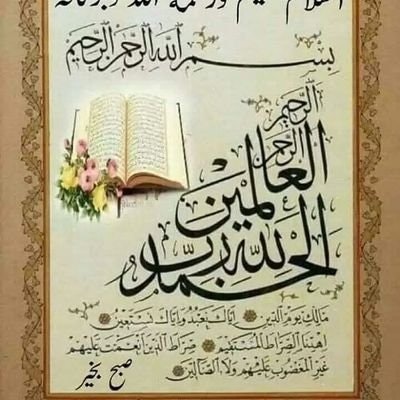 السلام علیکم ورحمۃ اللہ وبرکاتہ
بِسْمِ اللهِ الرَّحْمٰنِ الرَّحِيْمِ
الحمد لله رب العالمين
الرحمن الرحيم
مالك يوم الدين اياك نعبد واياك نستعين
اهدنا الصراط المستقيم صراط الذين انعمت عليهم
غير المغضوب عليهم ولا الضالين
صبح بخیر